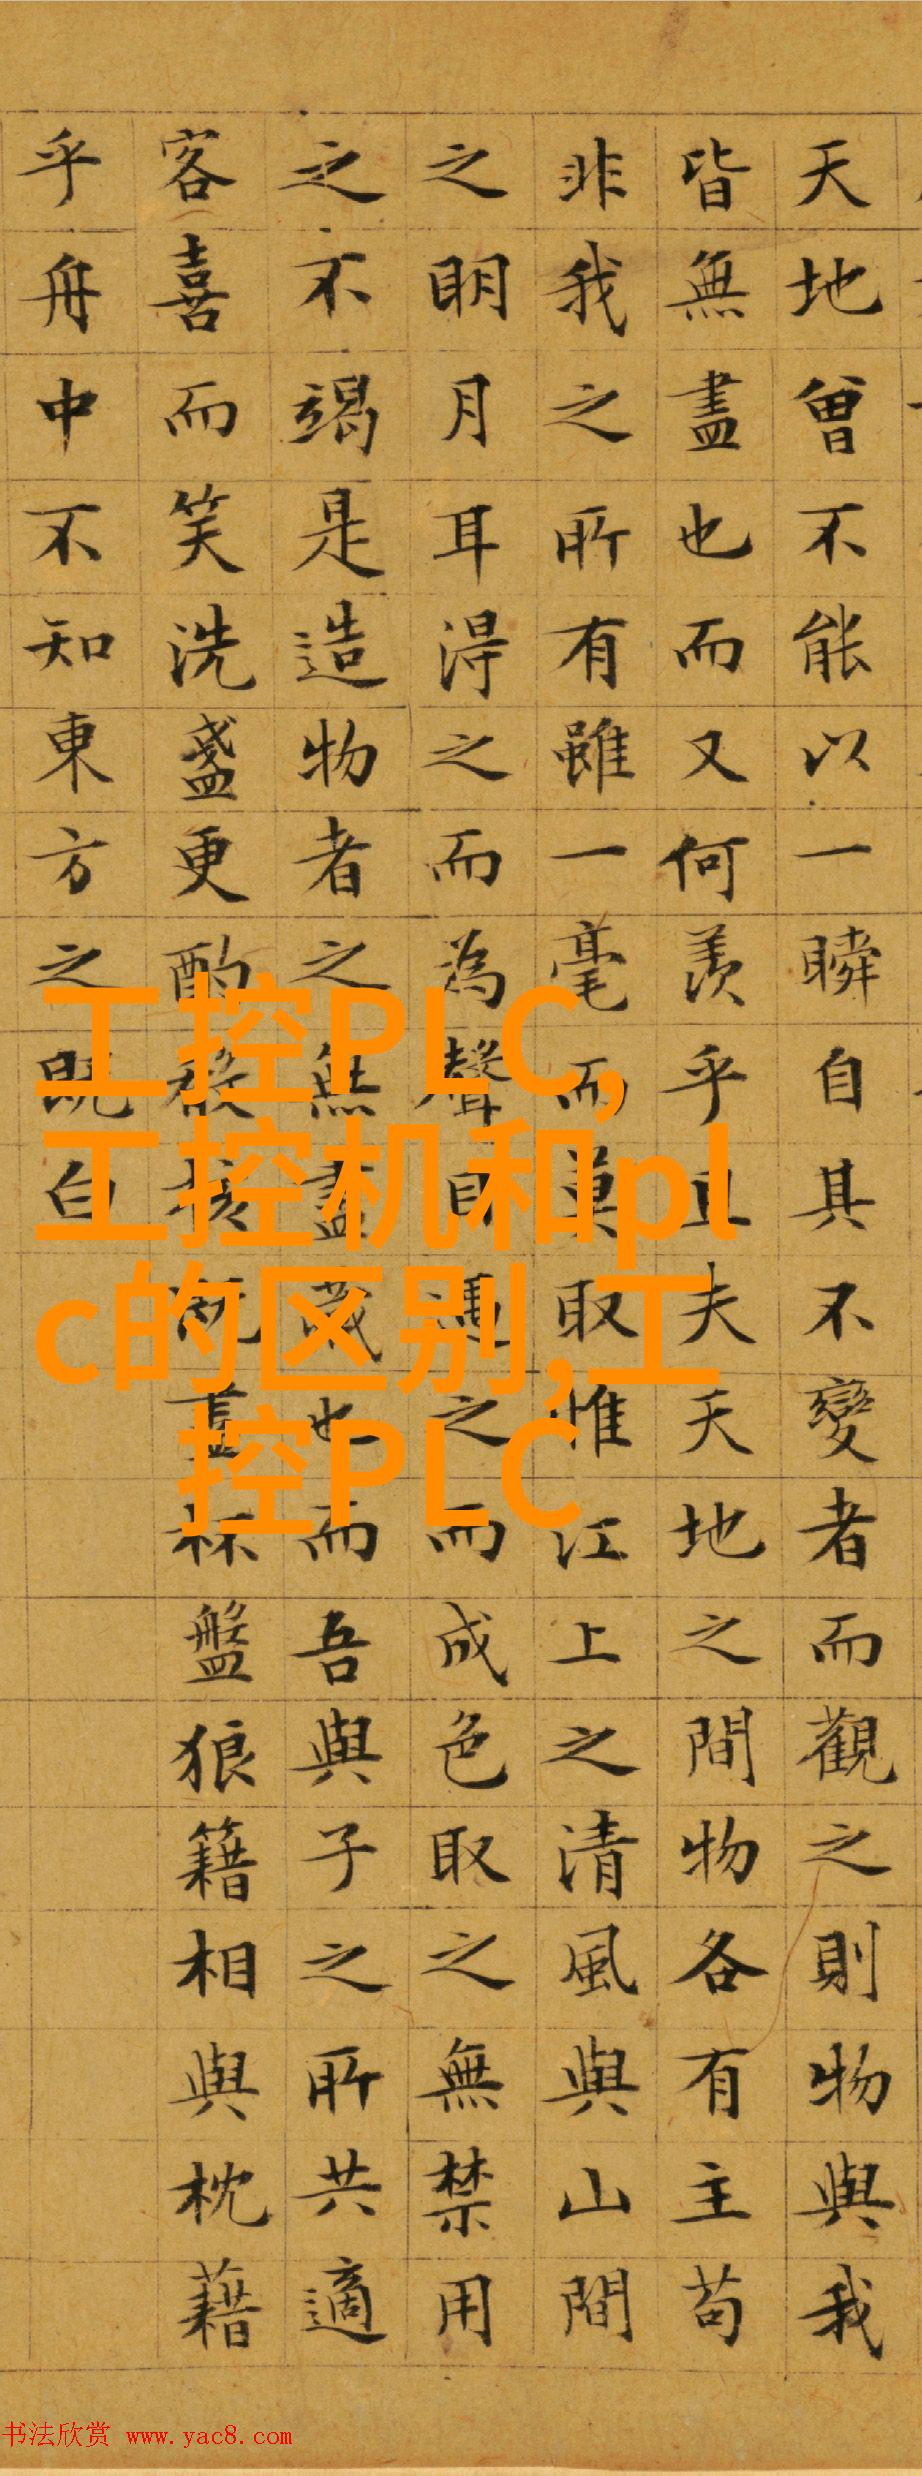 天地曾不能以一瞬自其不變者而觀之則物與我
皆無盡也而又何羨乎且夫天地之間物各有主苟
非我之所有雖一毫而莫取惟江上之清風與山間
之明月耳得之而為聲目遇之而成色取之無禁用
之不竭是造物者之無盡藏也而吾與子之所共適
客喜而笑洗盞更酌殽核既盡杯盤狼籍相與枕藉
乎舟中不知東方之既白
工控PLC,
工控机和pl
c的区别,工
控PLC
书法欣赏 www.yac8.com